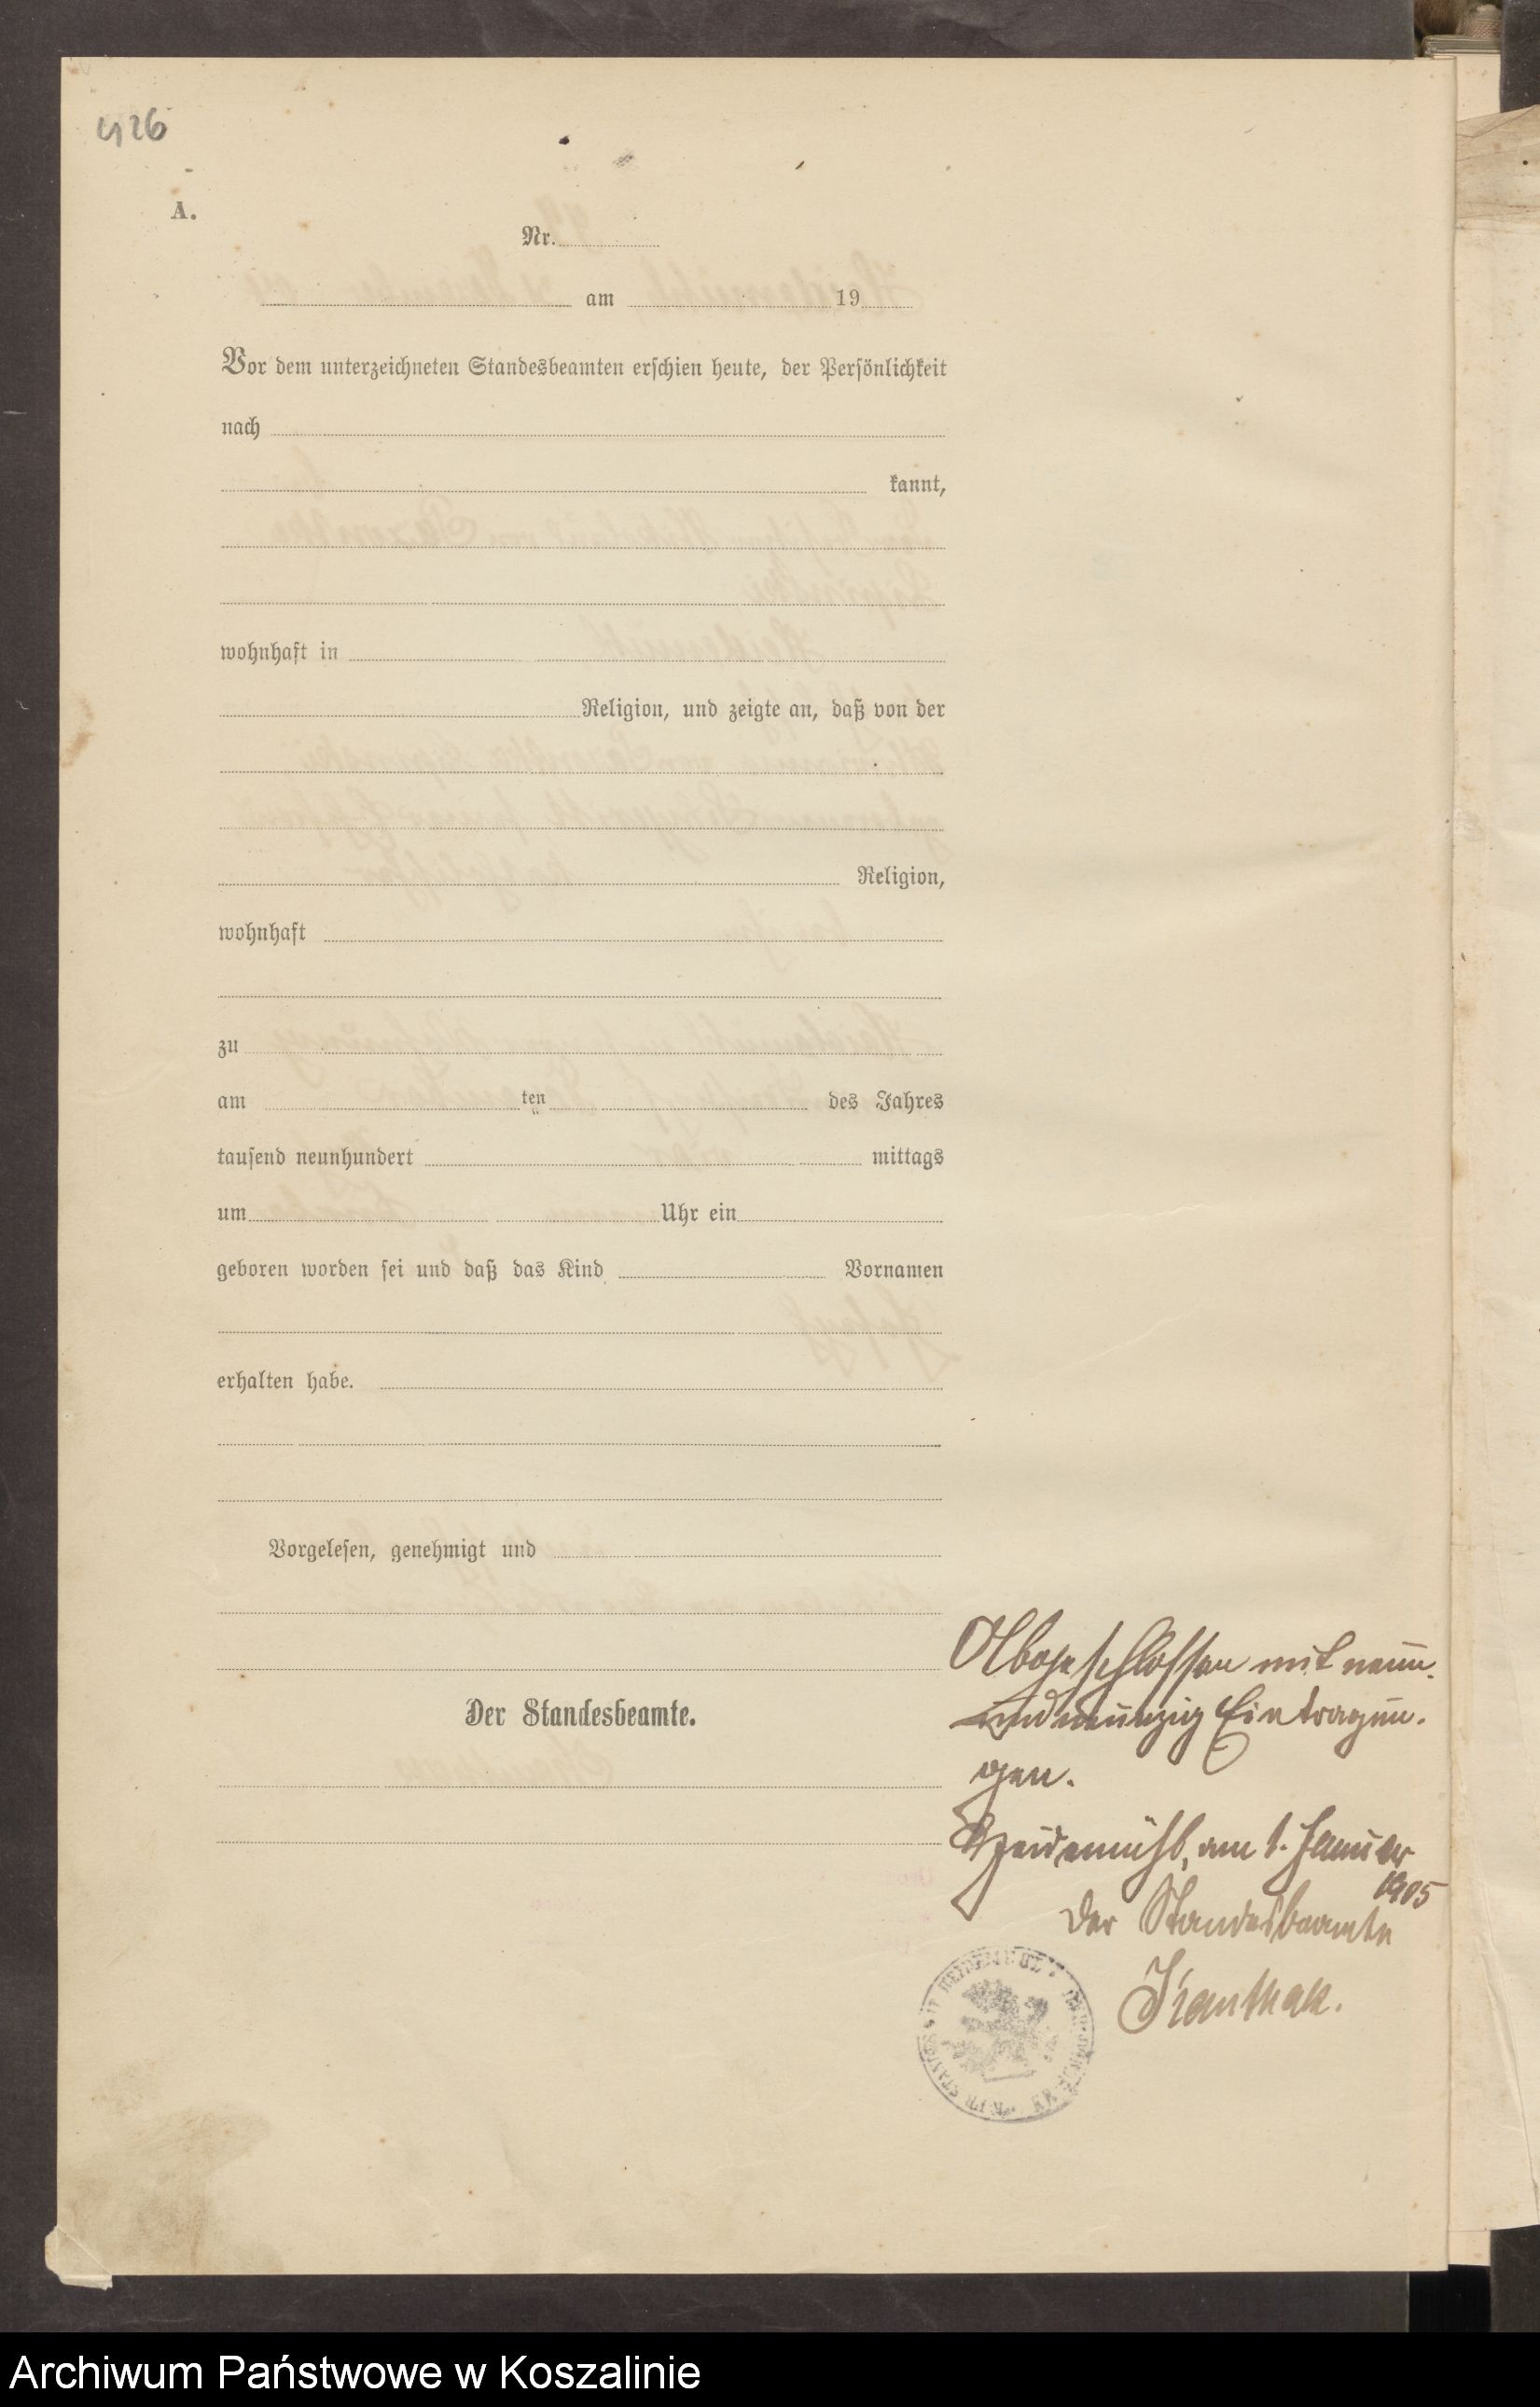 426
A.
Nr.
am 19
Vor dem unterzeichneten Standesbeamten erschien heute, der Persönlichkeit
nach
kannt,
wohnhaft in
Religion, und zeigte an, daß von der
Religion,
wohnhaft
zu
am ten des Jahres
tausend neunhundert mittags
um Uhr ein
geboren worden sei und daß das Kind Vornamen
erhalten habe.
Vorgelesen, genehmigt und
Abgeschlossen mit neun-
undneunzig Eintragun-
Der Standesbeamte.
gen.
Heidemühl, am 1. Januar
1905
Der Standesbeamte
Kanthak.
Archiwum Państwowe w Koszalinie